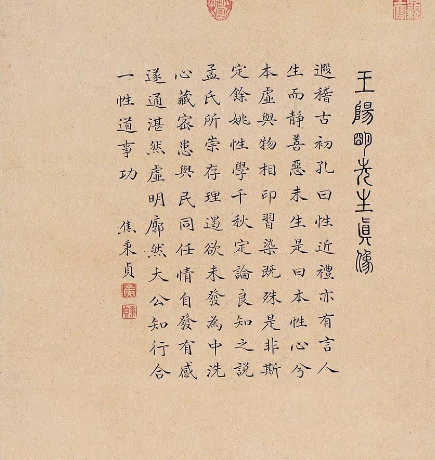 王陽明先生真像
遐稽古初孔曰性近禮亦有言人
生而静善惡未生是曰本性心兮
本虛與物相印習染既殊是非斯
定餘姚性學千秋定論良知之説
孟氏所崇存理遏欲未發為中洗
心藏密患與民同任情自發有感
遂通湛然虛明廓然大公知行合
一性道事功
焦秉貞